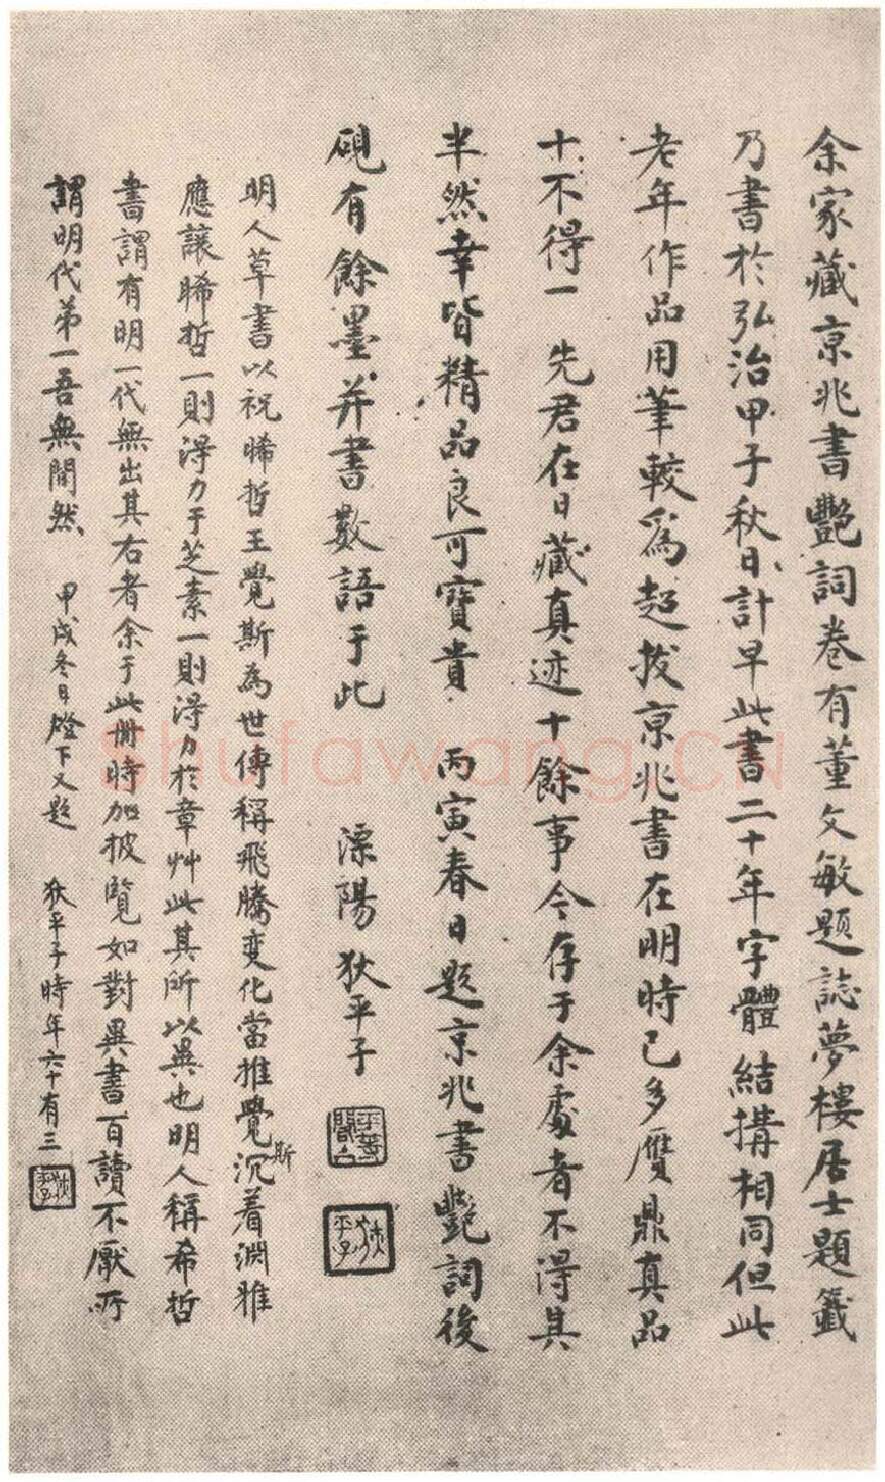 余家藏京兆書艷詞卷有董文敏題誌夢樓居士題籤
乃書於弘治甲子秋日計早此書二十年字體結搆相同但此
老年作品用筆較爲超拔京兆書在明時已多贋鼎真品
十不得一 先君在日藏真迹十餘事今存于余處者不得其
半然幸皆精品良可寶貴 丙寅春日題京兆書艷詞後
硯有餘墨并書數語于此 溧陽狄平子
明人草書以祝睎哲王覺斯為世傳稱飛騰变化當推覺斯沉着淵雅
應讓睎哲一則得力于芝素一則得力於章艸此其所以異也明人稱希哲
書謂有明一代無出其右者余于此冊時加披覽如對異書百讀不厭所
謂明代第一吾無間然 甲戌冬日燈下又題 狄平子時年六十有三
狄平子
shufawang.CN